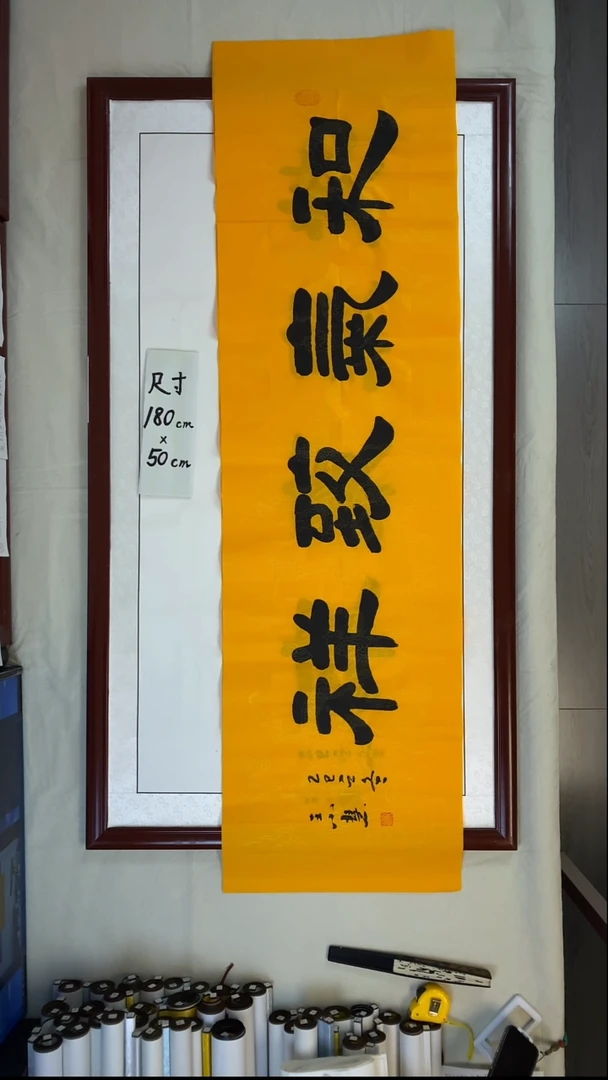 和氣致祥
乙巳
尺寸
180cm
×
50cm